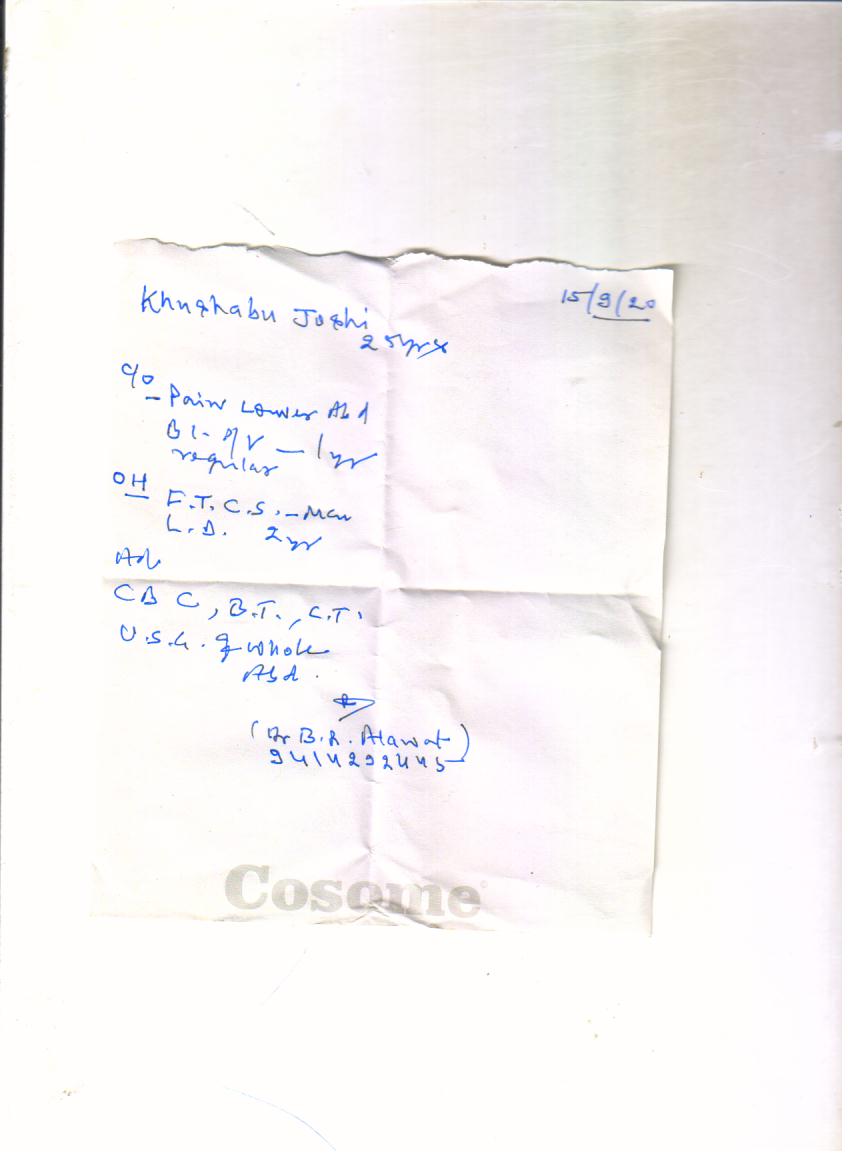 15/9/20
Khushabu Joshi
25yrs
C/o
- Pain Lower Abd
Bl. P/V - 1yr
regular
OH
F.T.C.S. - Male
L.D. 2yr
Adv
CBC, B.T., C.T.
U.S.G. of whole
Abd.
(Dr B.R. Atawat)
9414292445
Cosome